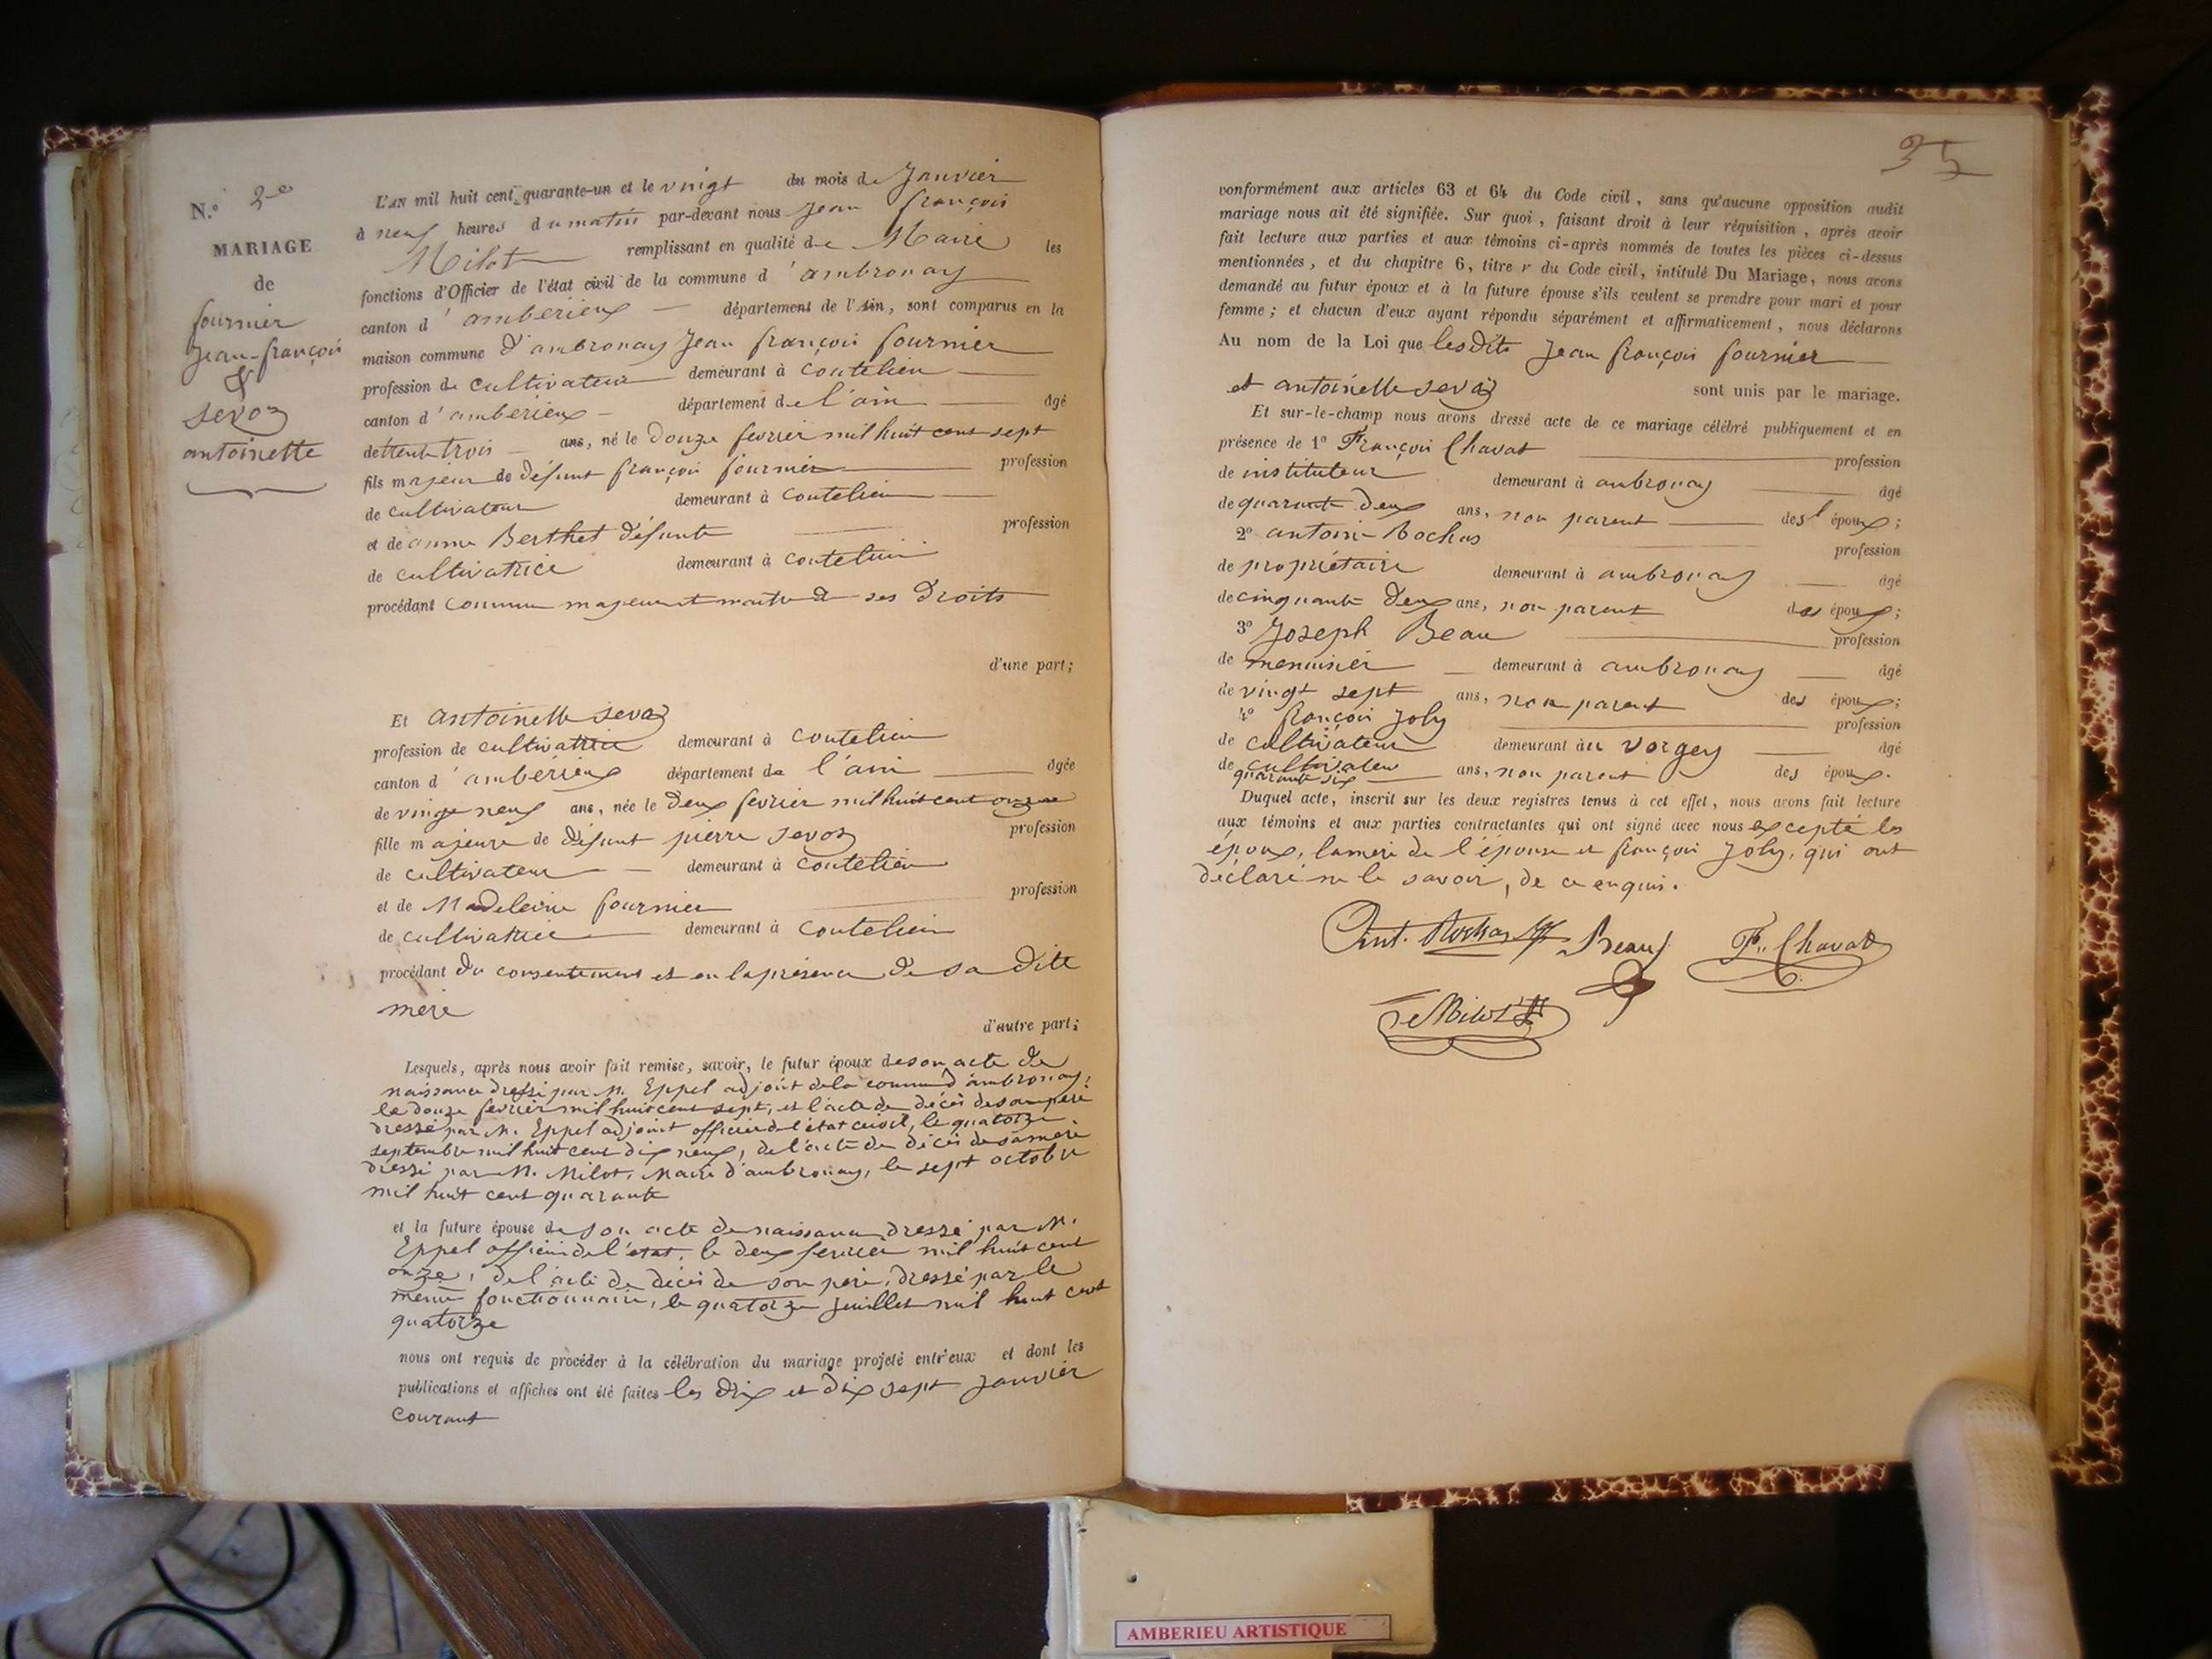 N.º 2e
MARIAGE
de
fournier
jean-françois
&
sevoz
antoinette
L'AN mil huit cent quarante-un et le vingt du mois de Janvier
à neuf heures du matin par-devant nous jean françois
Milot remplissant en qualité de Maire les
fonctions d'Officier de l'état civil de la commune d'ambronay
canton d'ambérieux département de l'Ain, sont comparus en la
maison commune d'ambronay Jean françois fournier
profession de cultivateur demeurant à Coutelieu
canton d'ambérieux département de l'ain âgé
de trente trois ans, né le douze fevrier mil huit cent sept
fils majeur de défunt françois fournier profession
de cultivateur demeurant à Coutelieu
et de anne Berthet défunte profession
de cultivatrice demeurant à coutelieu
procédant comme majeur et maitre de ses droits
d'une part;
Et antoinette sevoz
profession de cultivatrice demeurant à coutelieu
canton d'ambérieux département de l'ain âgée
de vingt neuf ans, née le deux fevrier mil huit cent onze
fille majeure de défunt pierre sevoz profession
de cultivateur demeurant à coutelieu
et de Madeleine fournier profession
de cultivatrice demeurant à coutelieu
procédant du consentement et en la présence de sa dite
mere
d'autre part;
Lesquels, après nous avoir fait remise, savoir, le futur époux de son acte de
naissance dressé par M. Eppel adjoint de la commune d'ambronay,
le douze fevrier mil huit cent sept, et l'acte de décès de son pere
dressé par M. Eppel adjoint officier de l'état civil, le quatorze
septembre mil huit cent dix neuf, de l'acte de décès de sa mere
dressé par M. Milot, Maire d'ambronay, le sept octobre
mil huit cent quarante
et la future épouse de son acte de naissance dressé par M.
Eppel officier de l'état, le deux fevrier mil huit cent
onze, de l'acte de décès de son pere, dressé par le
même fonctionnaire, le quatorze juillet mil huit cent
quatorze
nous ont requis de procéder à la célébration du mariage projeté entr'eux et dont les
publications et affiches ont été faites les dix et dix sept janvier
courant
35
conformément aux articles 63 et 64 du Code civil, sans qu'aucune opposition audit
mariage nous ait été signifiée. Sur quoi, faisant droit à leur réquisition, après avoir
fait lecture aux parties et aux témoins ci-après nommés de toutes les pièces ci-dessus
mentionnées, et du chapitre 6, titre v du Code civil, intitulé Du Mariage, nous avons
demandé au futur époux et à la future épouse s'ils veulent se prendre pour mari et pour
femme; et chacun d'eux ayant répondu séparément et affirmativement, nous déclarons
Au nom de la Loi que lesdits Jean françois fournier
et antoinette sevoz sont unis par le mariage.
Et sur-le-champ nous avons dressé acte de ce mariage célébré publiquement et en
présence de 1º François Chavat profession
de instituteur demeurant à ambronay âgé
de quarante deux ans, non parent des époux;
2º antoine Rochas profession
de propriétaire demeurant à ambronay âgé
de cinquante deux ans, non parent des époux;
3º Joseph Beau profession
de menuisier demeurant à ambronay âgé
de vingt sept ans, non parent des époux;
4º françois Joly profession
de cultivateur demeurant au vorgey âgé
de cultivateur
quarante six ans, non parent des époux.
Duquel acte, inscrit sur les deux registres tenus à cet effet, nous avons fait lecture
aux témoins et aux parties contractantes qui ont signé avec nous excepté les
époux, la mere de l'épouse et françois Joly, qui ont
déclaré ne le savoir, de ce enquis.
Ant. Rochas Beau F. Chavat
Milot
AMBERIEU ARTISTIQUE